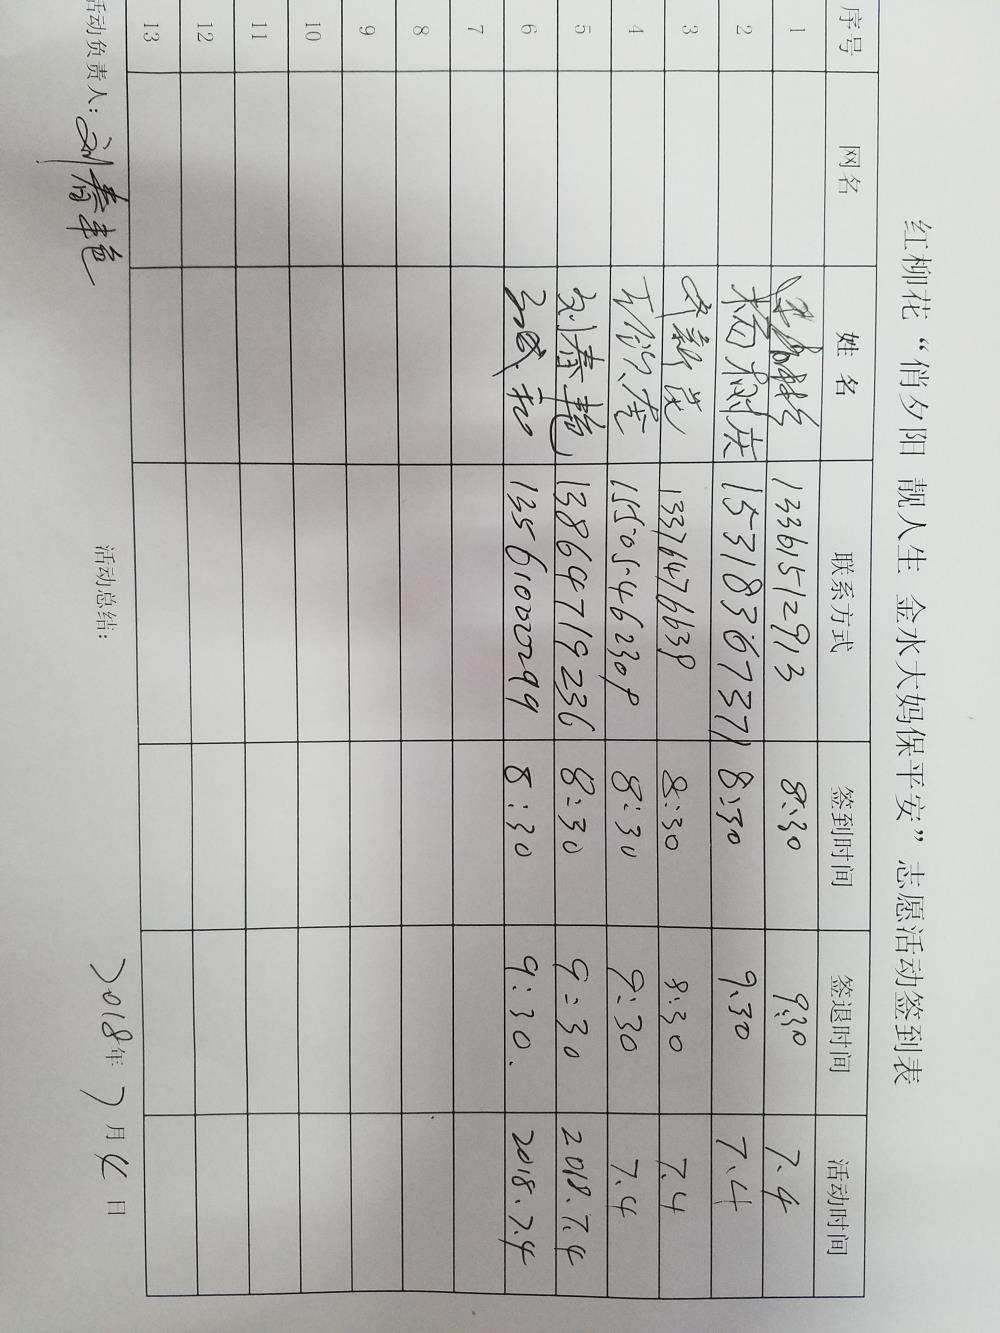 红柳花“俏夕阳 靓人生 金水大妈保平安”志愿活动签到表
序号 网名 姓名 联系方式 签到时间 签退时间 活动时间
1 13361512913 8:30 9:30 7.4
2 杨树庆 15318367371 8:30 9:30 7.4
3 13376476639 8:30 8:30 7.4
4 15505462309 8:30 9:30 7.4
5 刘春艳 13864719236 8:30 9:30 2018.7.4
6 13561000299 8:30 9:30. 2018.7.4
7
8
9
10
11
12
13
活动负责人:刘春艳 活动总结: 2018年7月4日